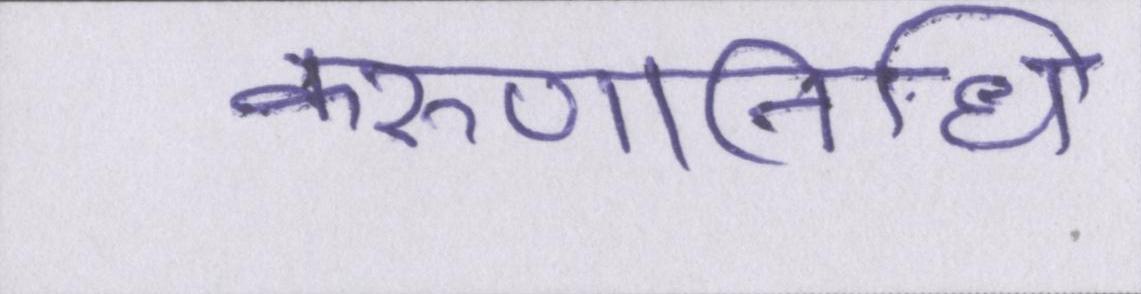 करुणानिधि